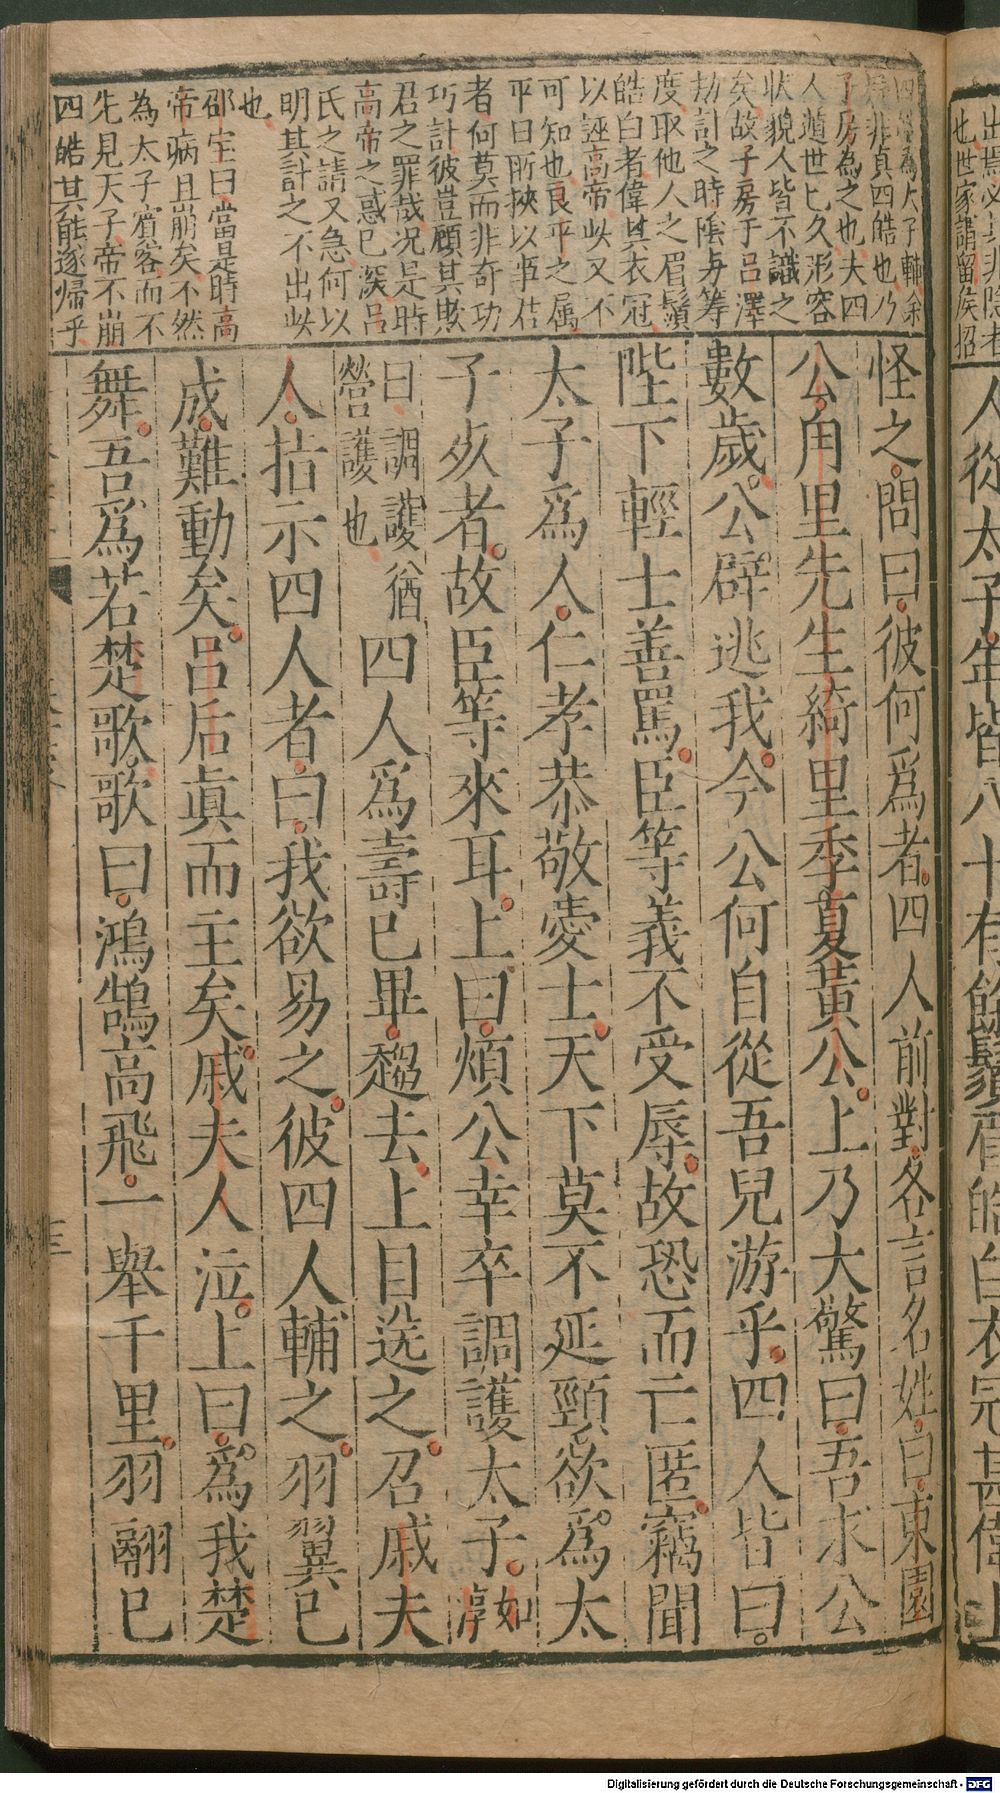 四皓為太子輔余
疑非真四皓也乃
子房為之也夫四
人遁世已久形容
狀貌人皆不識之
矣故子房于呂澤
劫計之時陰與籌
度取他人之眉鬚
皓白者偉其衣冠
以誣高帝此又不
可知也良平之屬
平日所挾以事佶
者何莫而非奇功
巧計彼豈顧其欺
君之罪哉況是時
高帝之惑已深呂
氏之請又急何以
明其計之不出此
也
邵宝曰當是時高
帝病且崩矣不然
為太子賓客而不
先見天子帝不崩
四皓其能遂歸乎
怪之問曰彼何爲者四人前對各言名姓曰東園
公甪里先生綺里季夏黃公上乃大驚曰吾求公
數歲公辟逃我今公何自從吾兒游乎四人皆曰
陛下輕士善罵臣等義不受辱故恐而亡匿竊聞
太子爲人仁孝恭敬愛士天下莫不延頸欲爲太
子死者故臣等來耳上曰煩公幸卒調護太子如淳
曰調護猶營護也四人爲壽已畢趨去上目送之召戚夫
人指示四人者曰我欲易之彼四人輔之羽翼已
成難動矣呂后真而主矣戚夫人泣上曰爲我楚
舞吾爲若楚歌歌曰鴻鵠高飛一舉千里羽翮已
出焉必
也世家謂留侯招
人從太子年皆八十有餘鬚眉皓白衣冠甚偉上
Digitalisierung gefördert durch die Deutsche Forschungsgemeinschaft - DFG